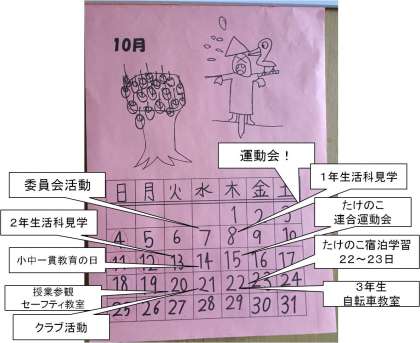 10月
運動会！
委員会活動
1年生活科見学
日 月 火 水 木 金 土
2年生活科見学
たけのこ
連合運動会
1 2 3
4 5 6 7 8 9 10
小中一貫教育の日
たけのこ宿泊学習
22～23日
11 12 13 14 15 16 17
授業参観
セーフティ教室
3年生
自転車教室
18 19 20 21 22 23 24
クラブ活動
25 26 27 28 29 30 31